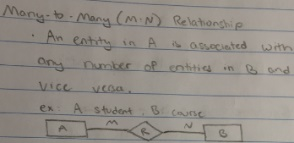 Many-to-Many (M:N) Relationship
· An entity in A is associated with
any number of entities in B and
vice versa.
ex: A student, B: course
A M R N B